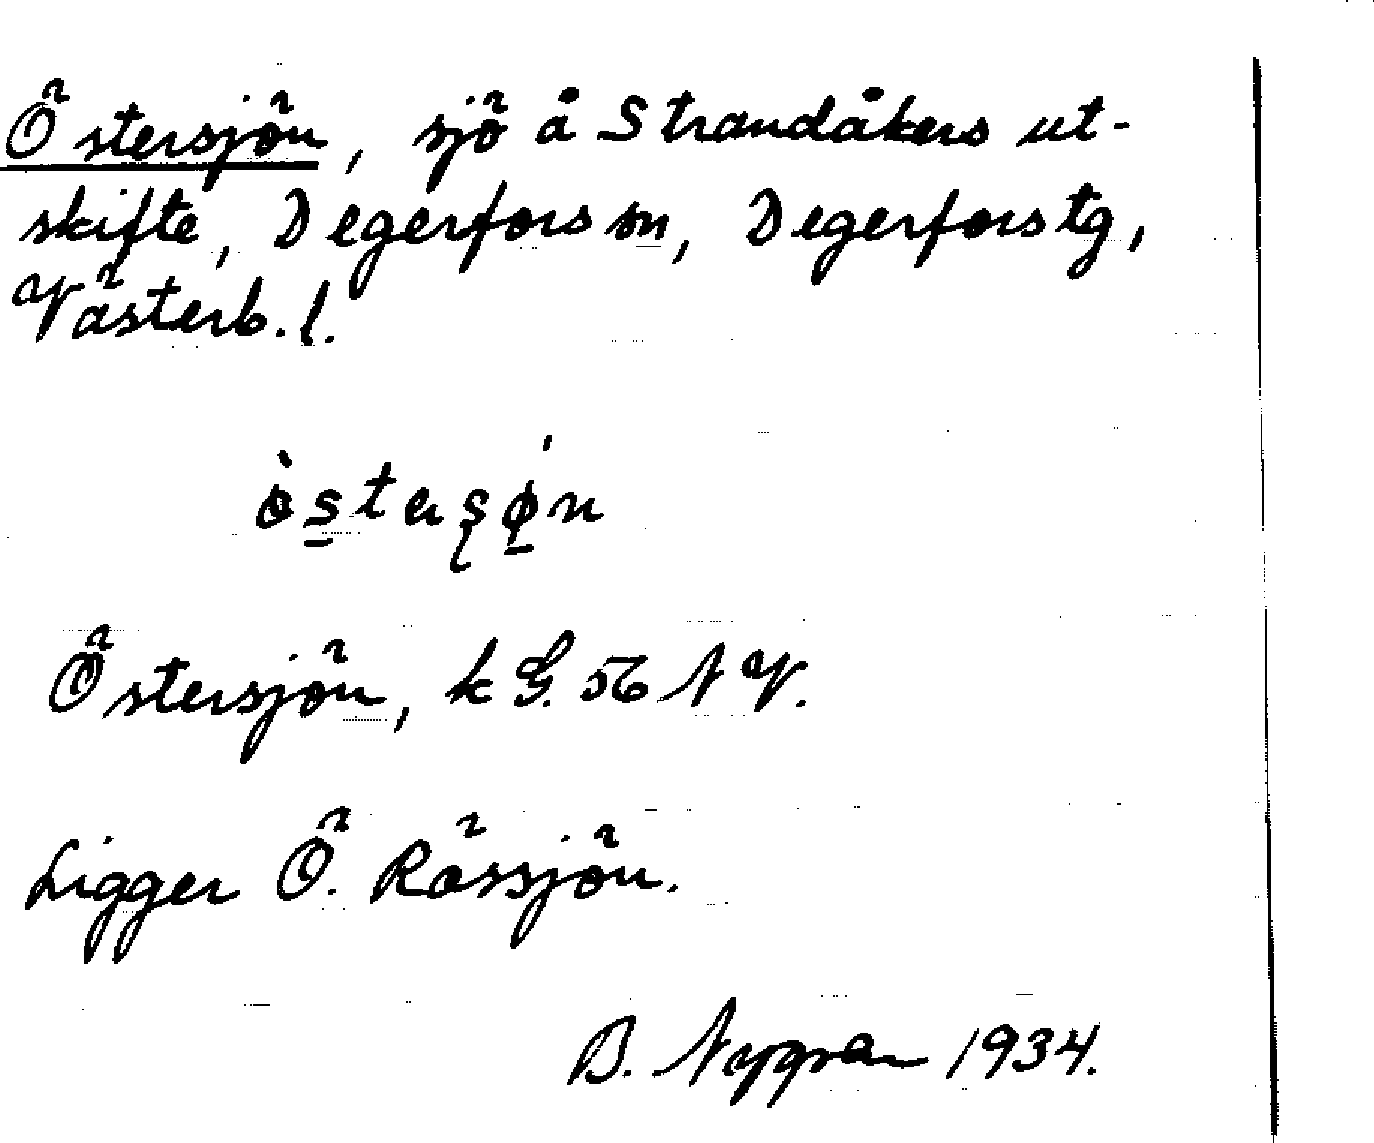 Östersjön, sjö å Strandåkers ut-
skifte, Degerfors sn, Degerfors tg,
Västerb. l.
Östersjön, k G. 56 N V.
Ligger Ö. Rössjön.
B. Nygren 1934.